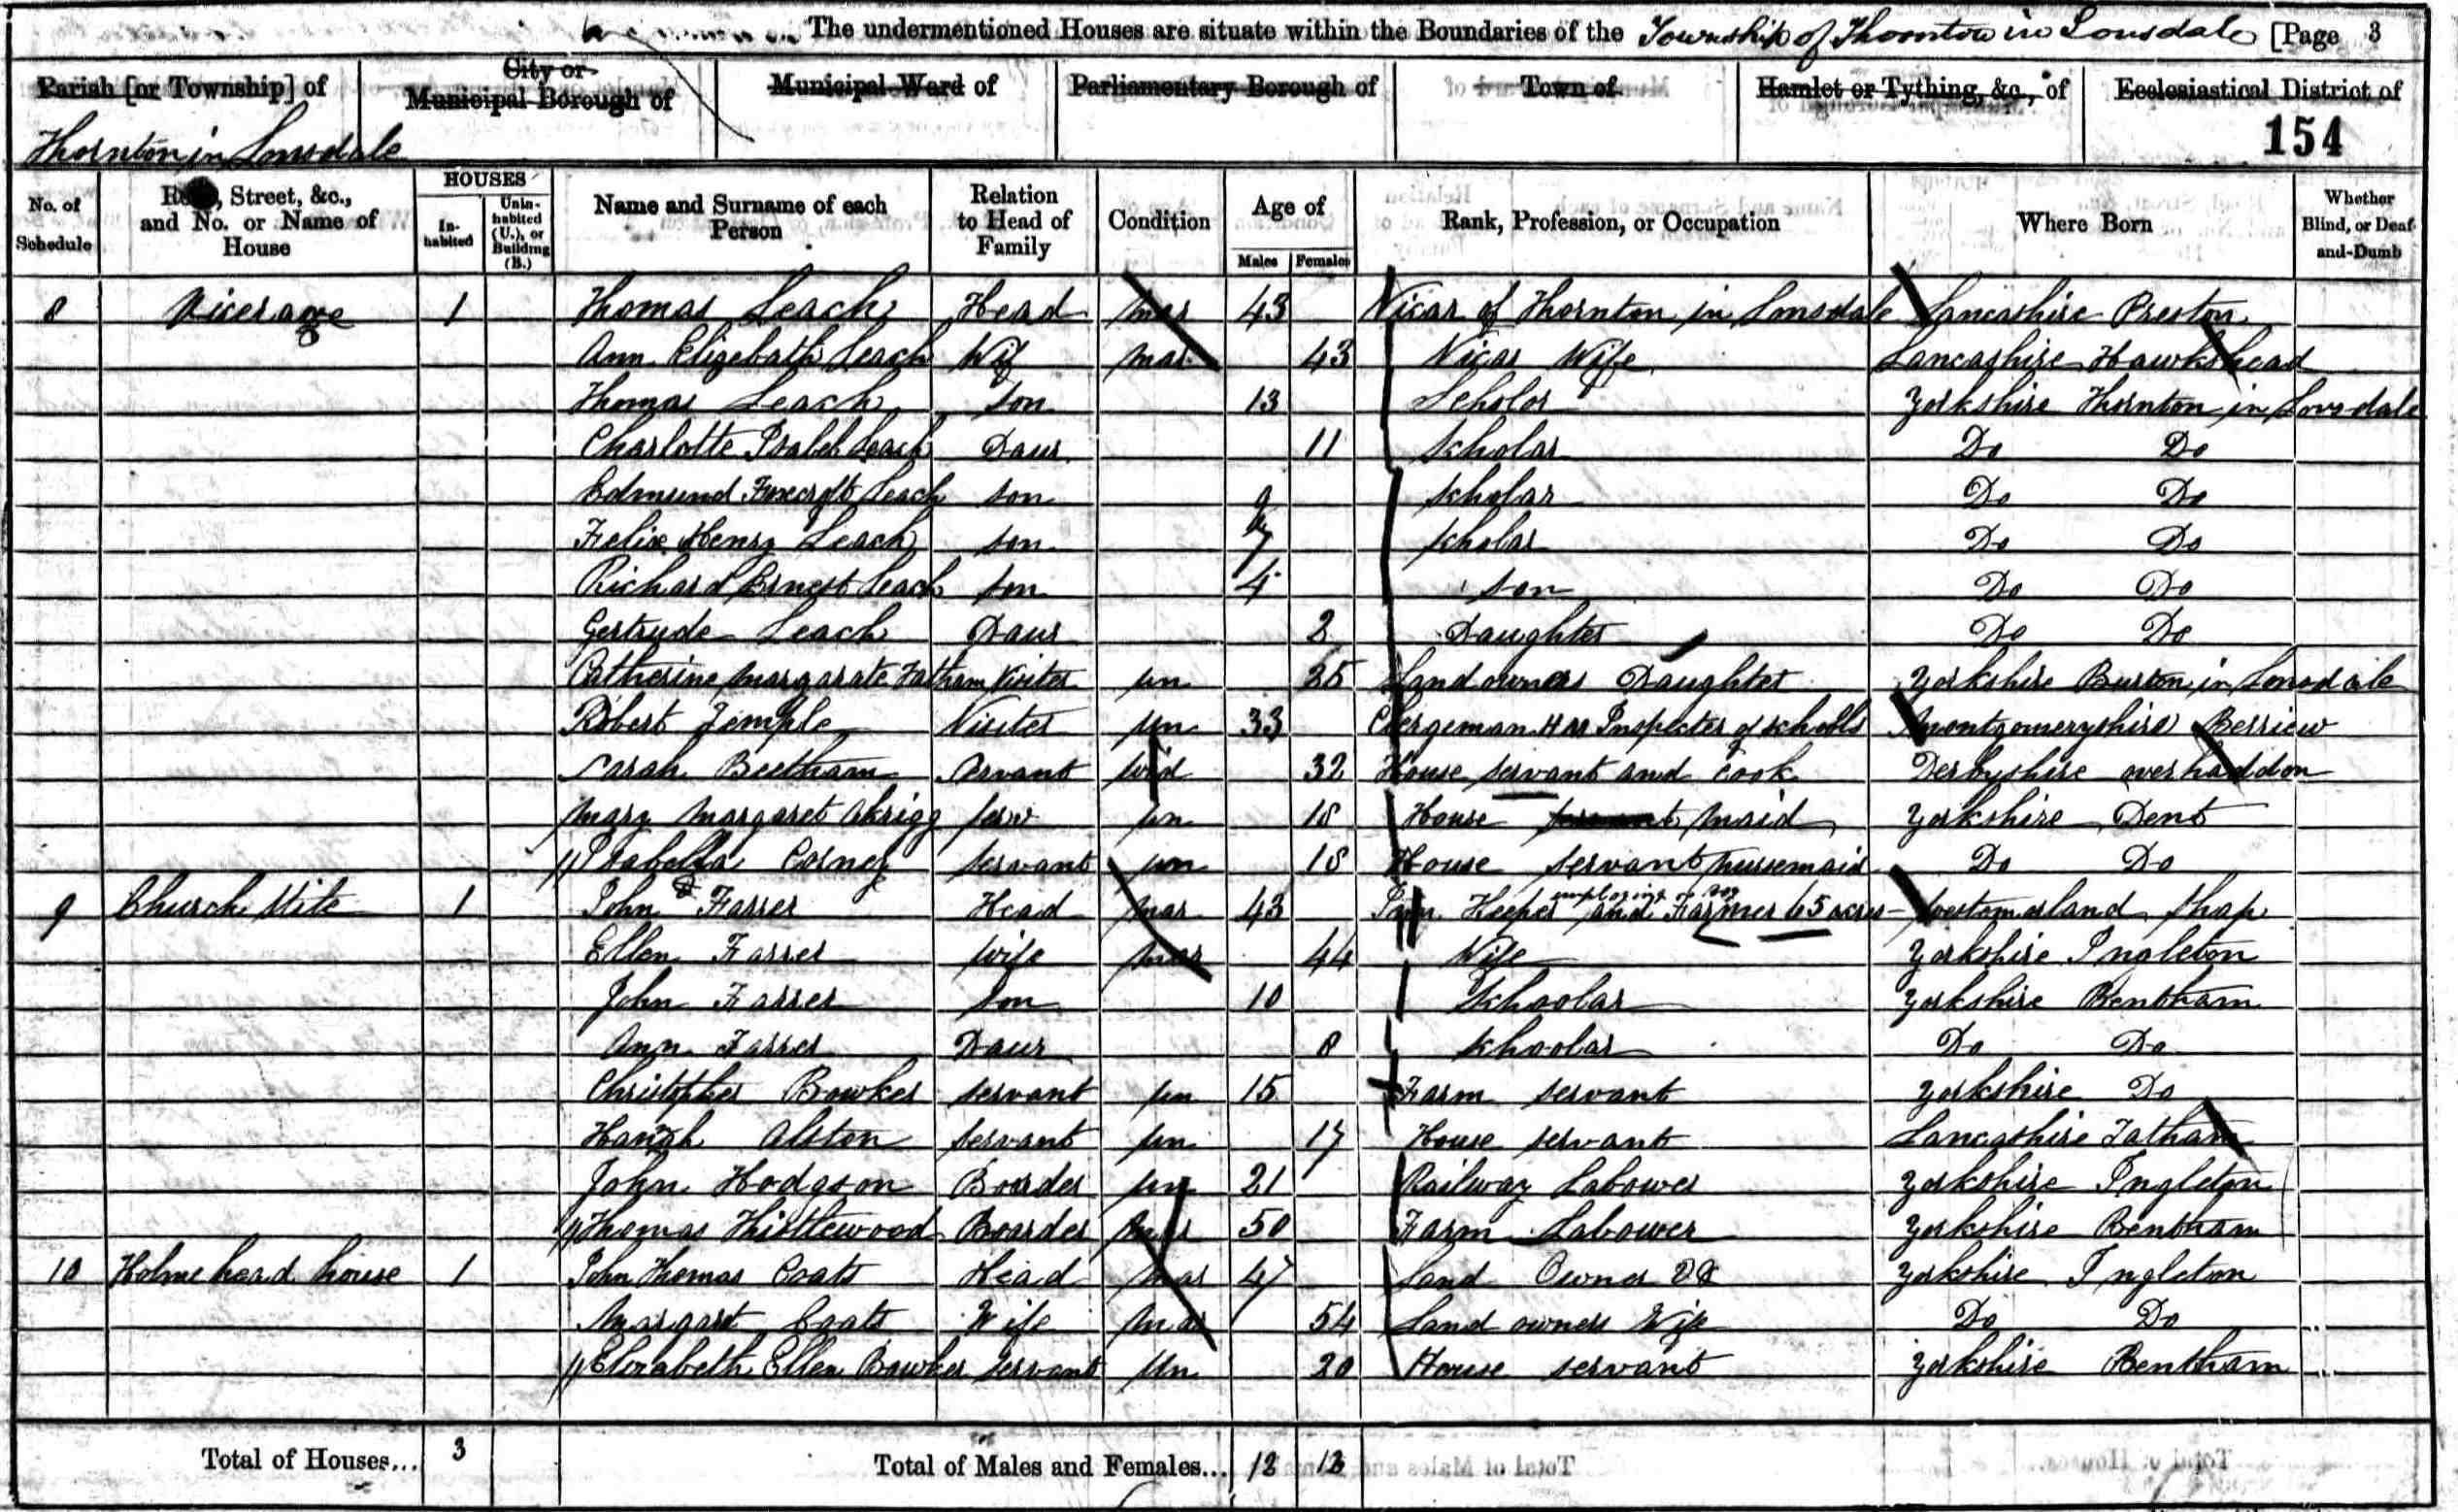 The undermentioned Houses are situate within the Boundaries of the Township of Thornton in Lonsdale [Page 3
Parish [or Township] of City or Municipal Borough of Municipal Ward of Parliamentary Borough of Town of Hamlet or Tything, &c., of Ecclesiastical District of
Thornton in Lonsdale 154
No. of Schedule Road, Street, &c., and No. or Name of House HOUSES Inhabited Uninhabited (U.), or Building (B.) Name and Surname of each Person Relation to Head of Family Condition Age of Males Females Rank, Profession, or Occupation Where Born Whether Blind, or Deaf-and-Dumb
8 Vicerage 1 Thomas Leach Head Mar 43 Vicar of Thornton in Lonsdale Lancashire Preston
Ann Elizebath Leach Wif Mar 43 Vicar Wife Lancashire Hawkshead
Thomas Leach Son 13 Scholor Yorkshire Thornton in Lonsdale
Charlotte Isabel Leach Daur 11 Scholar Do Do
Edmund Foxcroft Leach son 9 Scholar Do Do
Felix Henry Leach son 7 Scholar Do Do
Richard Ernest Leach son 4 son Do Do
Gertrude Leach Daur 2 Daughter Do Do
Catherine Margarate Tatham Visiter un 25 Land owners Daughter Yorkshire Burton in Lonsdale
Robert Temple Visiter un 33 Clergeman Inspecter of schools Montgomeryshire Berriew
Sarah Beetham Servant Wid 32 House servant and Cook Derbyshire over haddon
Mary Margaret Akrigg serv un 18 House servant Maid Yorkshire Dent
Isabella Corney servant un 18 House servant nursemaid Do Do
9 Church Stile 1 John Farrer Head Mar 43 Inn Keeper and Farmer 65 acres employing a boy Westomarland Shap
Ellen Farrer wife Mar 44 Wife Yorkshire Ingleton
John Farrer Son 10 Schoolar Yorkshire Bentham
Ann Farrer Daur 8 Schoolar Do Do
Christopher Bowker servant un 15 Farm servant Yorkshire Do
Hanah Alston servant un 17 House servant Lancashire Tatham
John Hodgson Boarder un 21 Railway Labower Yorkshire Ingleton
Thomas Thistlewood Boarder Mar 50 Farm Labower Yorkshire Bentham
10 Holme head house 1 John Thomas Coats Head Mar 47 Land Owner Yorkshire Ingleton
Margart Coats Wife Mar 54 Land owners Wife Do Do
Elizabeth Ellen Bowker servant Un 20 House servant Yorkshire Bentham
Total of Houses... 3 Total of Males and Females... 12 12